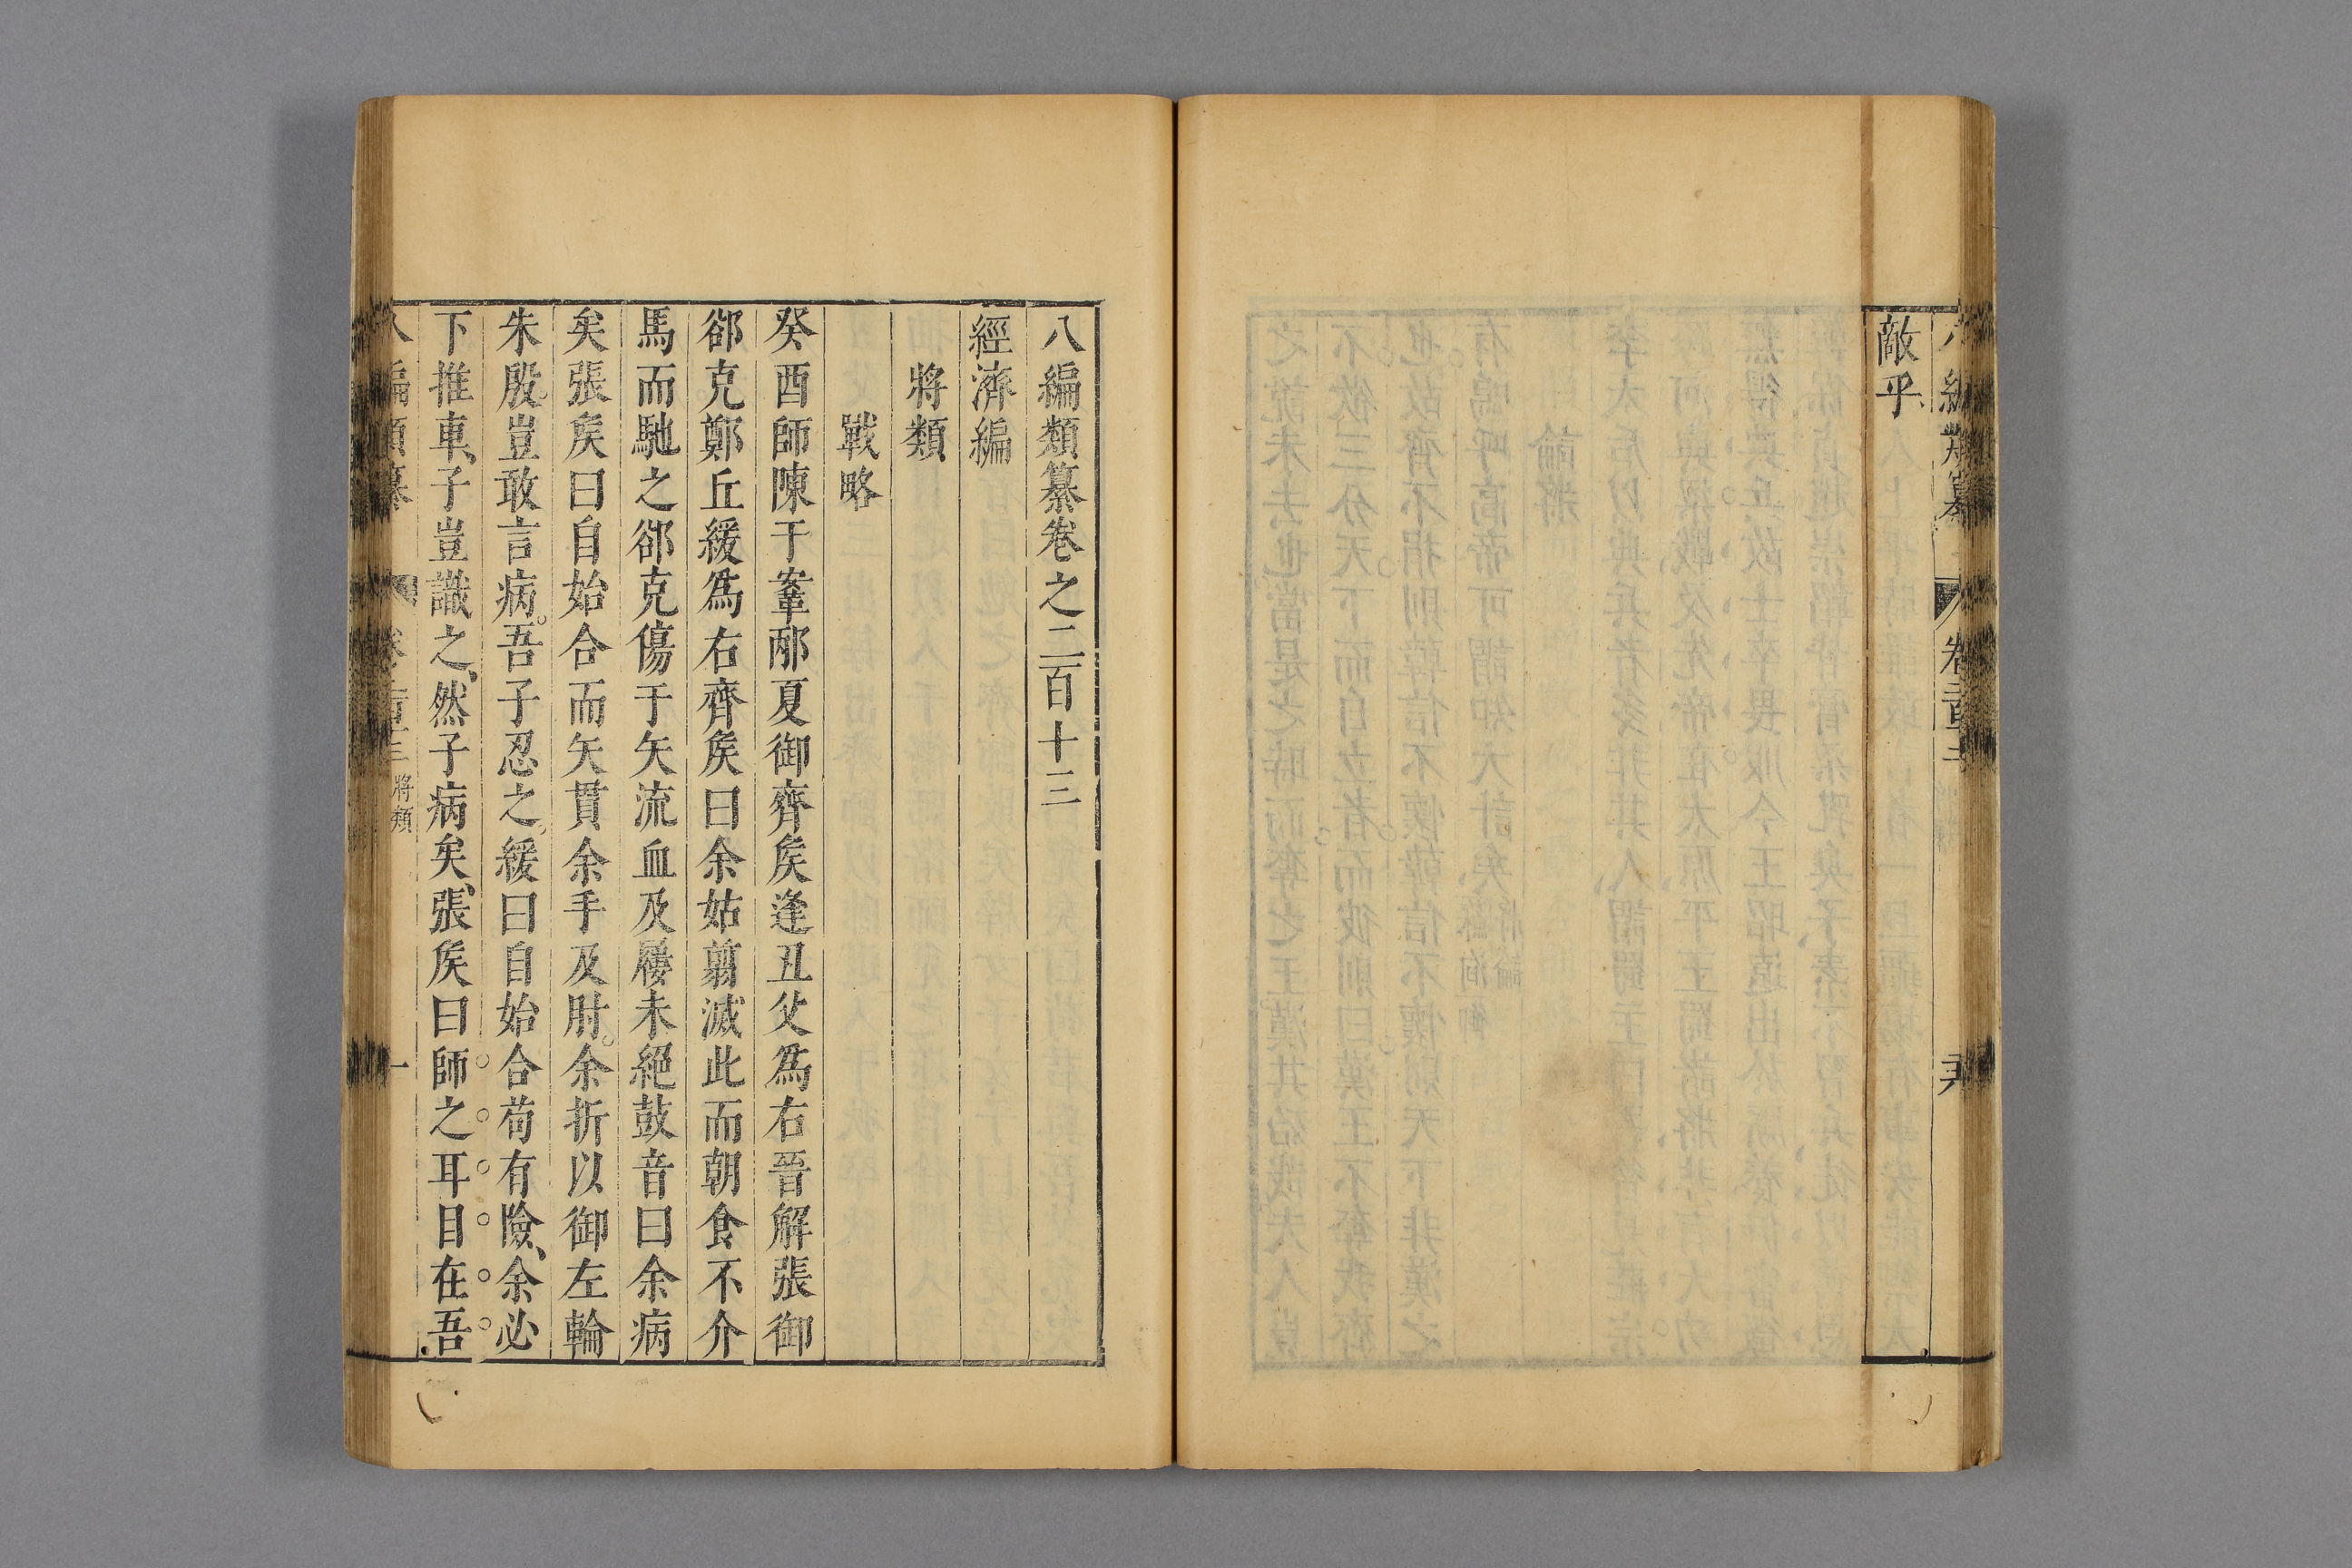 敵乎
八編類纂卷之二百十三
經濟編
將類
戰略
癸酉師陳于鞌邴夏御齊矦逢丑父爲右晉解張御
郤克鄭丘緩爲右齊矦曰余姑翦滅此而朝食不介
馬而馳之郤克傷于矢流血及屨未絕鼓音曰余病
矣張矦曰自始合而矢貫余手及肘余折以御左輪
朱殷豈敢言病吾子忍之緩曰自始合苟有險余必
下推車子豈識之然子病矣張矦曰師之耳目在吾
將類
一